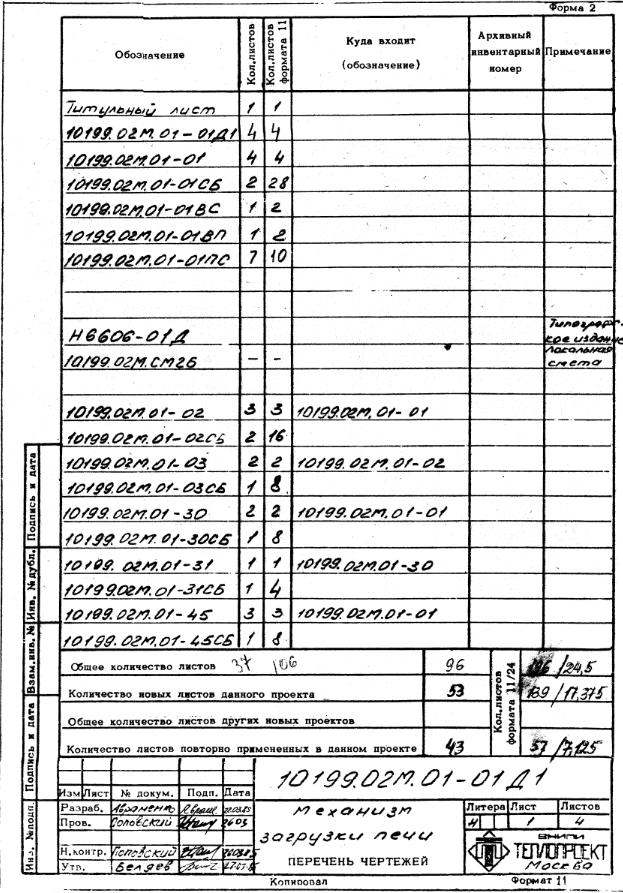 Форма 2
Обозначение Кол.листов Кол.листов формата 11 Куда входит (обозначение) Архивный инвентарный номер Примечание
Титульный лист 1 1
10199.02М.01-01Д1 4 4
10199.02М.01-01 4 4
10199.02М.01-01СБ 2 28
10199.02М.01-01ВС 1 2
10199.02М.01-01ВП 1 2
10199.02М.01-01ПС 7 10
Н6606-01Д Типографс-
кое издание
10199.02М.СМ2Б - - локальная
смета
10199.02М.01-02 3 3 10199.02М.01-01
10199.02М.01-02СБ 2 16
10199.02М.01-03 2 2 10199.02М.01-02
10199.02М.01-03СБ 1 8
10199.02М.01-30 2 2 10199.02М.01-01
10199.02М.01-30СБ 1 8
10199.02М.01-31 1 1 10199.02М.01-30
10199.02М.01-31СБ 1 4
10199.02М.01-45 3 3 10199.02М.01-01
10199.02М.01-45СБ 1 8
Общее количество листов 37 106 96 Кол.листов формата 11/24 /24,5
Количество новых листов данного проекта 53 139/17,375
Общее количество листов других новых проектов
Количество листов повторно примененных в данном проекте 43 57/7,125
Подпись и дата
Инв. № дубл.
Взам.инв. №
Подпись и дата
Инв. № подл.
10199.02М.01-01Д1
Изм Лист № докум. Подп. Дата
Разраб.
Пров. Соповский
Н.контр. Соповский
Утв. Беляев
Механизм
загрузки печи
ПЕРЕЧЕНЬ ЧЕРТЕЖЕЙ
Литера Лист Листов
И 1 4
ВНИПИ
ТЕПЛОПРОЕКТ
Москва
Копировал Формат 11